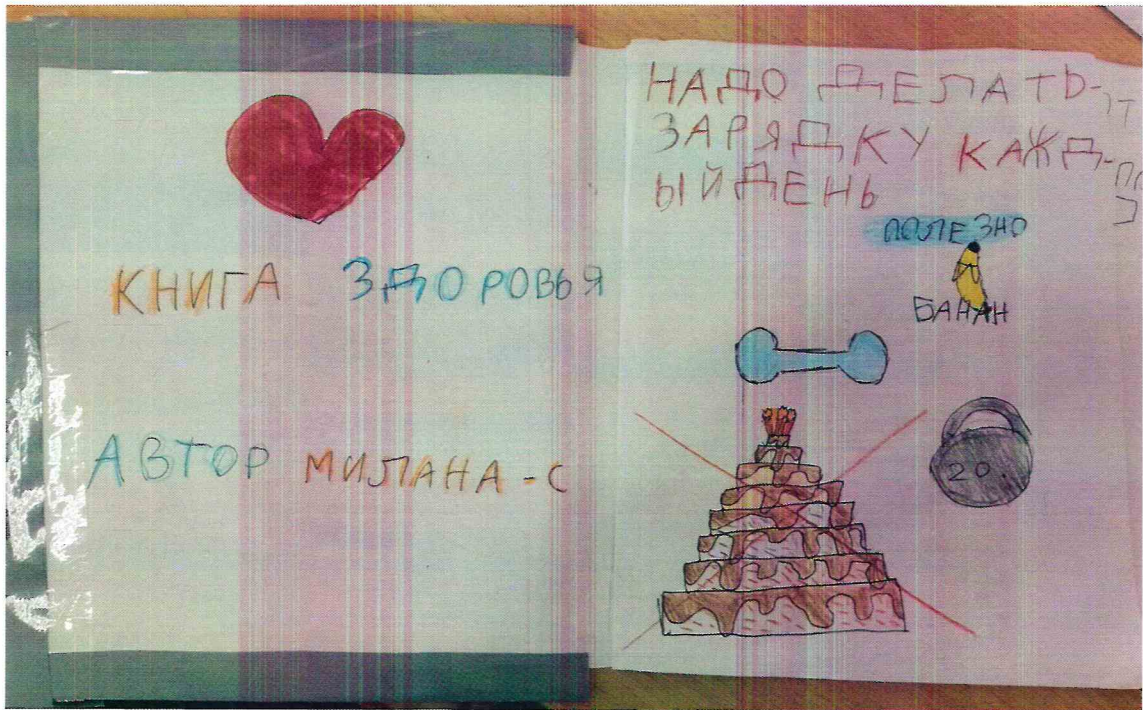 КНИГА ЗДОРОВЬЯ
АВТОР МИЛАНА-С
НАДО ДЕЛАТЬ-
ЗАРЯДКУ КАЖД-
ЫЙ ДЕНЬ
ПОЛЕЗНО
БАНАН
20.